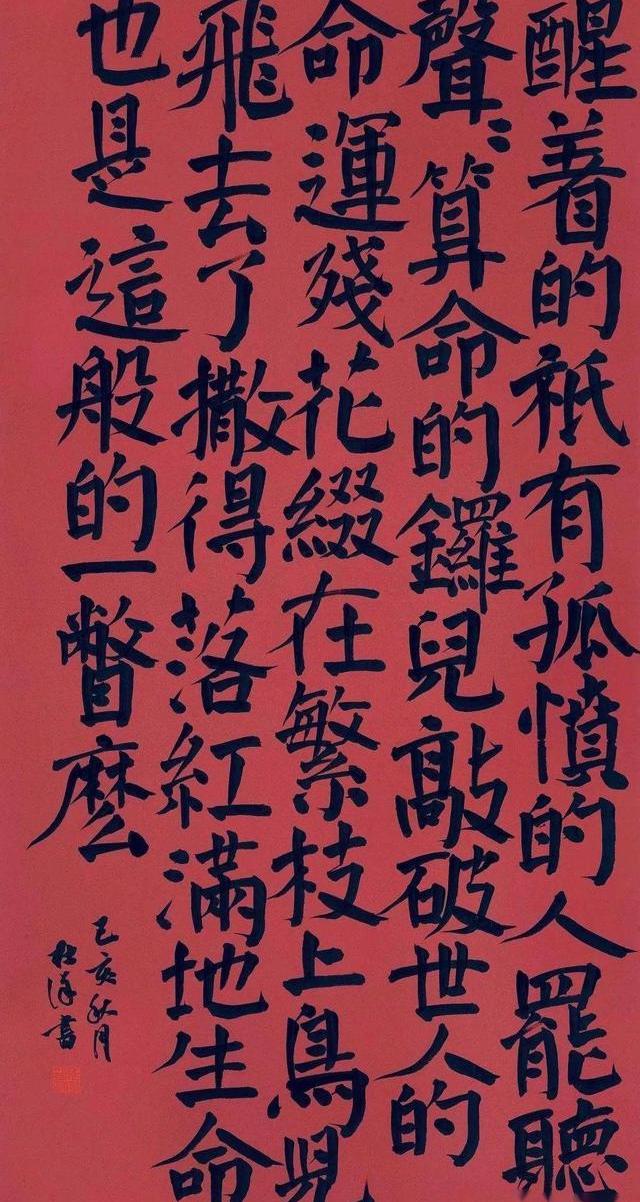 醒着的祇有孤憤的人罷聽
聲〻算命的鑼兒敲破世人的
命運殘花綴在繁枝上鳥兒
飛去了撒得落紅滿地生命
也是這般的一瞥麽
己亥秋月
杜書